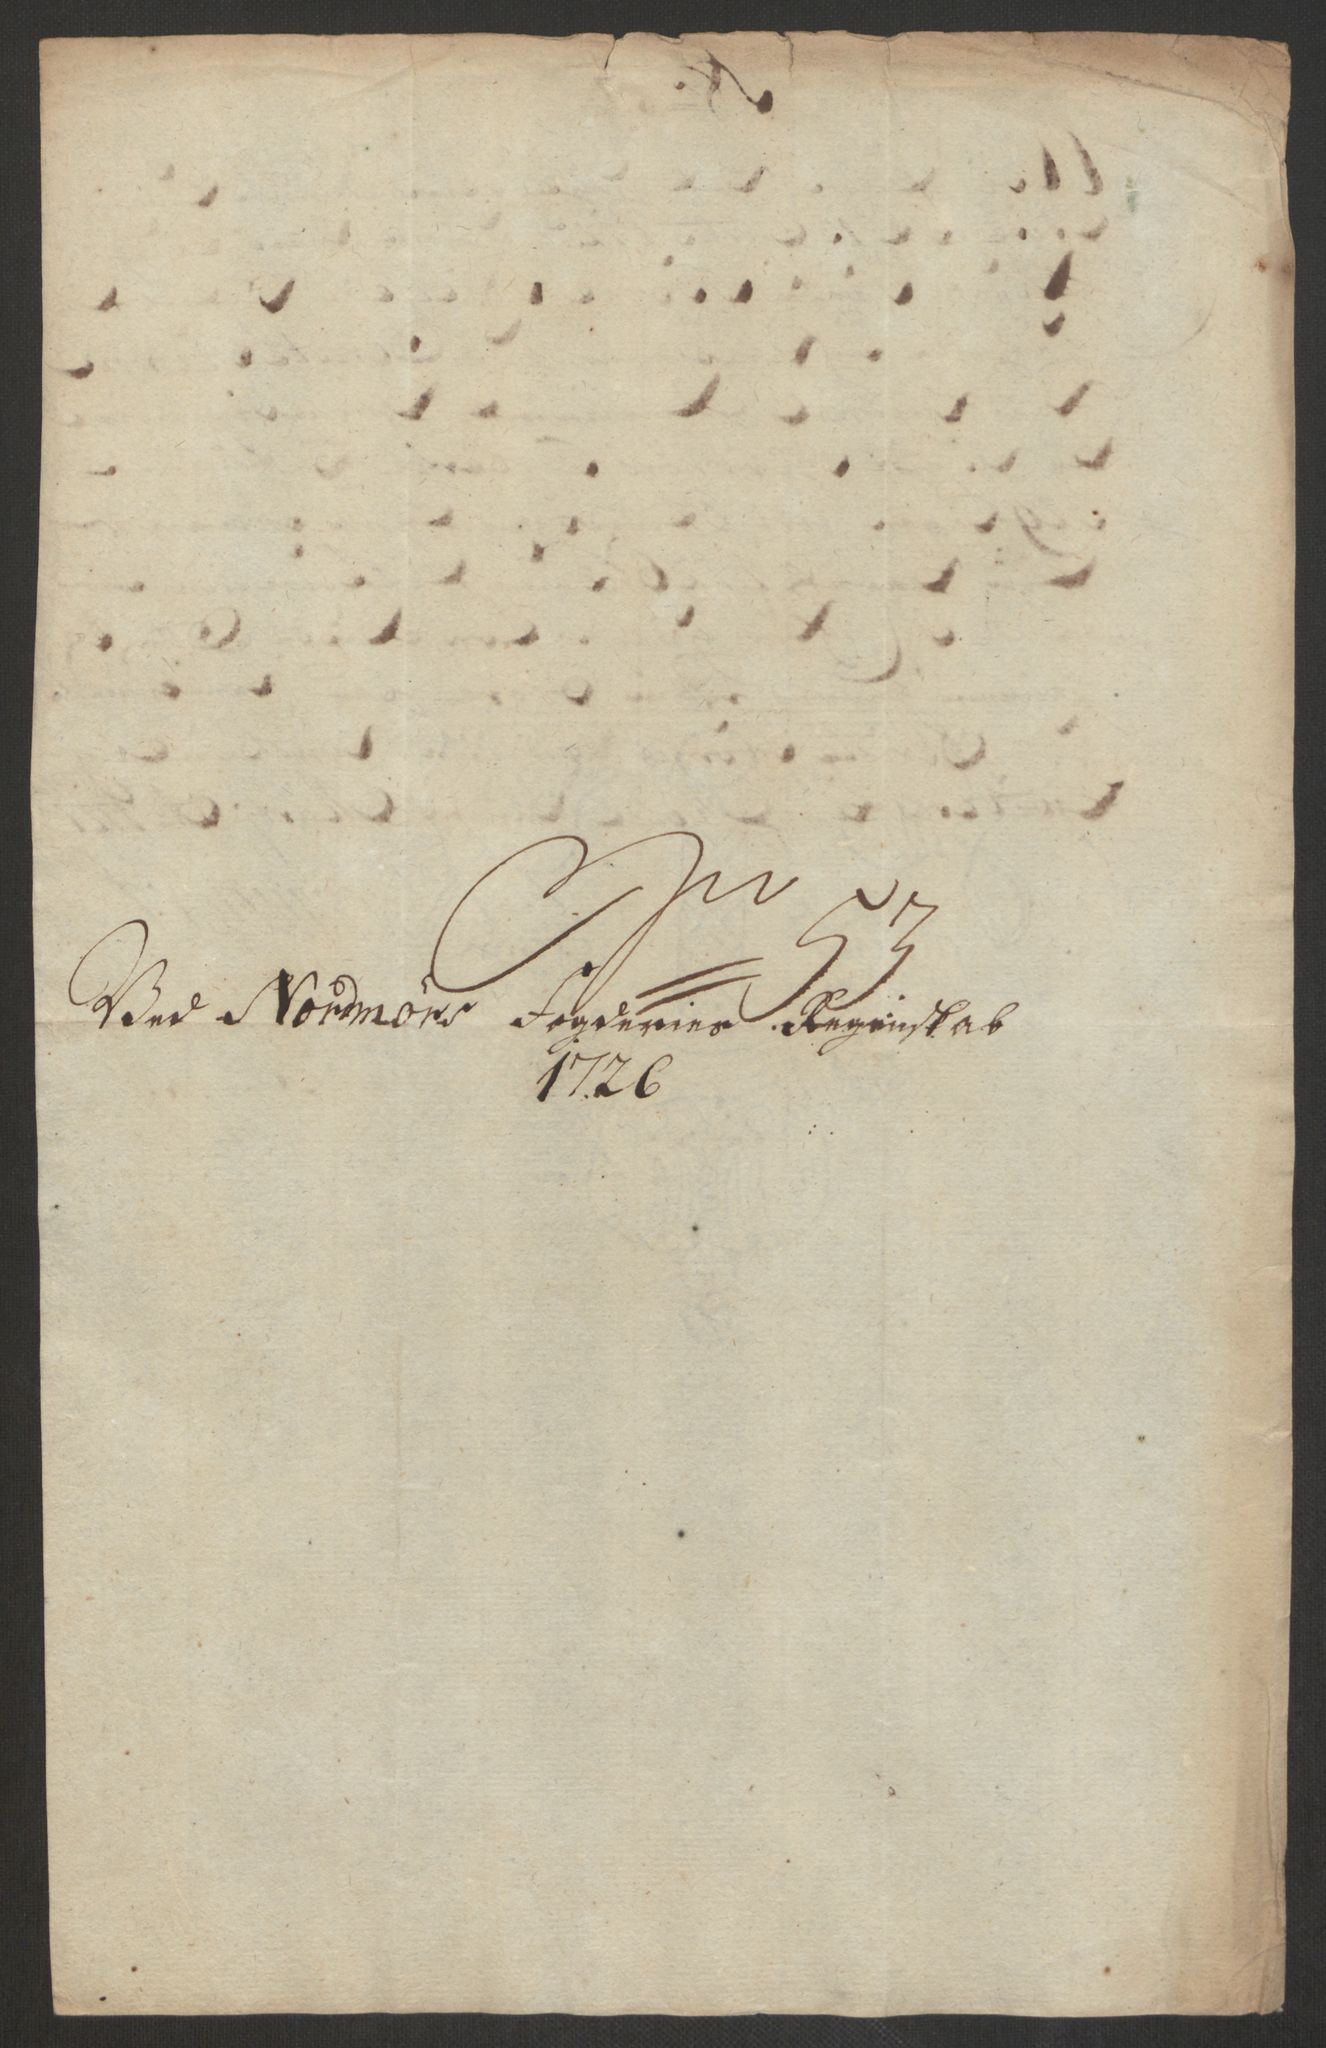 No 53
Ved Nordmörs Fogderies Regenskab
1726